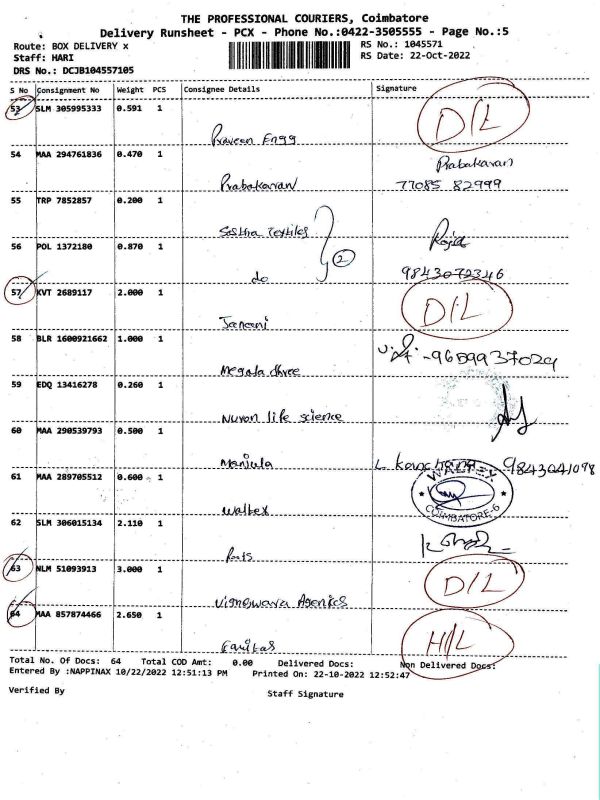 THE PROFESSIONAL COURIERS, Coimbatore
Delivery Runsheet - PCX - Phone No.:0422-3505555 - Page No.:5
Route: BOX DELIVERY x
RS No.: 1045571
Staff: HARI
RS Date: 22-Oct-2022
DRS No.: DCJB104557105
S No Consignment No Weight PCS Consignee Details Signature
53 SLM 305995333 0.591 1
D/L
Praveen Engg
54 MAA 294761836 0.470 1
Prabakaran
Prabakaran 77085 82999
55 TRP 7852857 0.200 1
Sastha Textiles
56 POL 1372180 0.870 1
2
do 9843072346
57 KVT 2689117 2.000 1
D/L
Janani
58 BLR 1600921662 1.000 1
Megala Shree
59 EDQ 13416278 0.260 1
Nuron life science
60 MAA 290539793 0.500 1
Manjula L. 9843041098
61 MAA 289705512 0.600 1
WALTEX
COIMBATORE-6
Waltex
62 SLM 306015134 2.110 1
63 NLM 51093913 3.000 1
D/L
Vigneswara Agencies
64 MAA 857874466 2.650 1
H/L
Total No. Of Docs: 64 Total COD Amt: 0.00 Delivered Docs: Non Delivered Docs:
Entered By :NAPPINAX 10/22/2022 12:51:13 PM Printed On: 22-10-2022 12:52:47
Verified By
Staff Signature